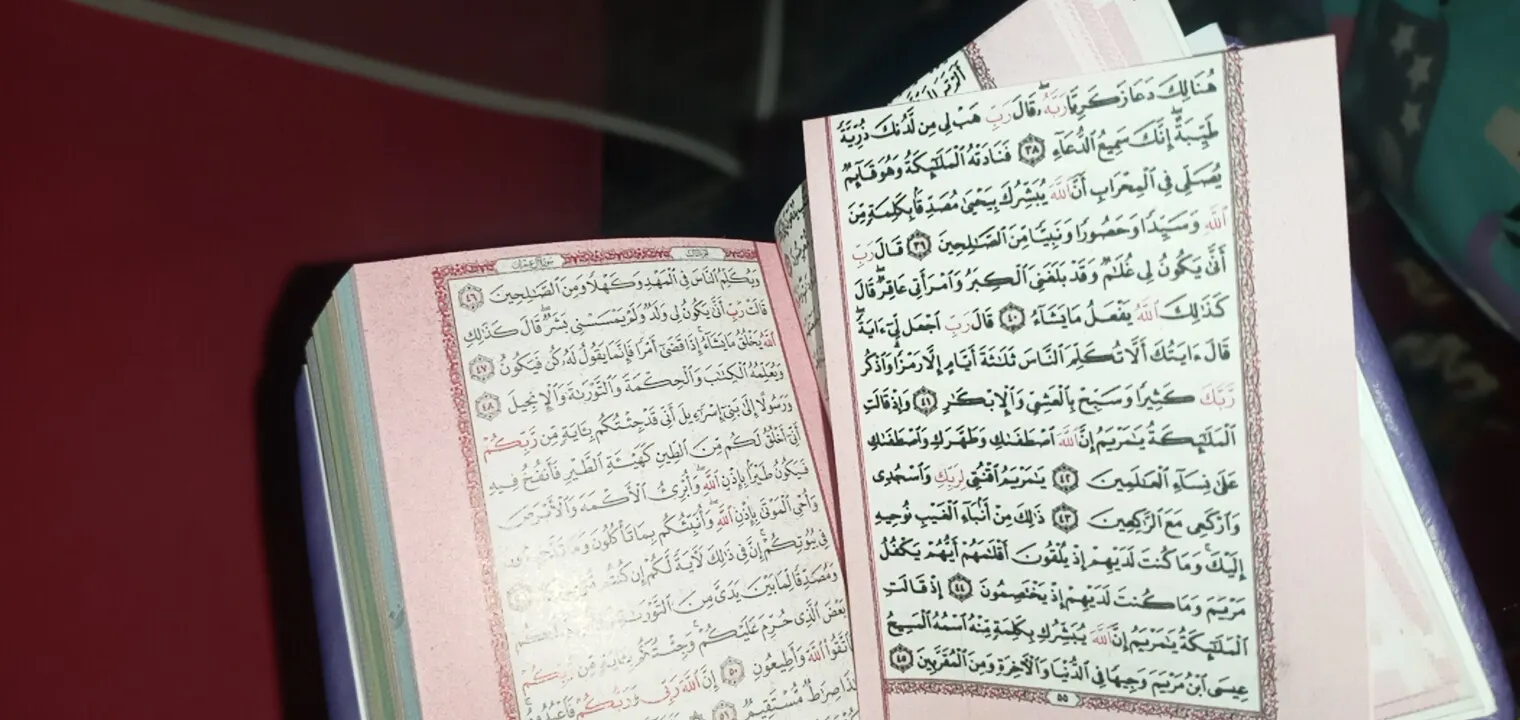 هُنَالِكَ دَعَا زَكَرِيَّا رَبَّهُۥ ۖ قَالَ رَبِّ هَبْ لِى مِن لَّدُنكَ ذُرِّيَّةً
طَيِّبَةً ۖ إِنَّكَ سَمِيعُ ٱلدُّعَآءِ ٣٨ فَنَادَتْهُ ٱلْمَلَٰٓئِكَةُ وَهُوَ قَآئِمٌ
يُصَلِّى فِى ٱلْمِحْرَابِ أَنَّ ٱللَّهَ يُبَشِّرُكَ بِيَحْيَىٰ مُصَدِّقًۢا بِكَلِمَةٍ مِّنَ
ٱللَّهِ وَسَيِّدًا وَحَصُورًا وَنَبِيًّا مِّنَ ٱلصَّٰلِحِينَ ٣٩ قَالَ رَبِّ
أَنَّىٰ يَكُونُ لِى غُلَٰمٌ وَقَدْ بَلَغَنِىَ ٱلْكِبَرُ وَٱمْرَأَتِى عَاقِرٌ ۖ قَالَ
كَذَٰلِكَ ٱللَّهُ يَفْعَلُ مَا يَشَآءُ ٤٠ قَالَ رَبِّ ٱجْعَل لِّىٓ ءَايَةً ۖ
قَالَ ءَايَتُكَ أَلَّا تُكَلِّمَ ٱلنَّاسَ ثَلَٰثَةَ أَيَّامٍ إِلَّا رَمْزًا ۗ وَٱذْكُر
رَّبَّكَ كَثِيرًا وَسَبِّحْ بِٱلْعَشِىِّ وَٱلْإِبْكَٰرِ ٤١ وَإِذْ قَالَتِ
ٱلْمَلَٰٓئِكَةُ يَٰمَرْيَمُ إِنَّ ٱللَّهَ ٱصْطَفَىٰكِ وَطَهَّرَكِ وَٱصْطَفَىٰكِ
عَلَىٰ نِسَآءِ ٱلْعَٰلَمِينَ ٤٢ يَٰمَرْيَمُ ٱقْنُتِى لِرَبِّكِ وَٱسْجُدِى
وَٱرْكَعِى مَعَ ٱلرَّٰكِعِينَ ٤٣ ذَٰلِكَ مِنْ أَنۢبَآءِ ٱلْغَيْبِ نُوحِيهِ
إِلَيْكَ ۚ وَمَا كُنتَ لَدَيْهِمْ إِذْ يُلْقُونَ أَقْلَٰمَهُمْ أَيُّهُمْ يَكْفُلُ
مَرْيَمَ وَمَا كُنتَ لَدَيْهِمْ إِذْ يَخْتَصِمُونَ ٤٤ إِذْ قَالَتِ
ٱلْمَلَٰٓئِكَةُ يَٰمَرْيَمُ إِنَّ ٱللَّهَ يُبَشِّرُكِ بِكَلِمَةٍ مِّنْهُ ٱسْمُهُ ٱلْمَسِيحُ
عِيسَى ٱبْنُ مَرْيَمَ وَجِيهًا فِى ٱلدُّنْيَا وَٱلْءَاخِرَةِ وَمِنَ ٱلْمُقَرَّبِينَ ٤٥
٥٥
وَيُكَلِّمُ ٱلنَّاسَ فِى ٱلْمَهْدِ وَكَهْلًا وَمِنَ ٱلصَّٰلِحِينَ ٤٦
قَالَتْ رَبِّ أَنَّىٰ يَكُونُ لِى وَلَدٌ وَلَمْ يَمْسَسْنِى بَشَرٌ ۖ قَالَ كَذَٰلِكِ
ٱللَّهُ يَخْلُقُ مَا يَشَآءُ ۚ إِذَا قَضَىٰٓ أَمْرًا فَإِنَّمَا يَقُولُ لَهُۥ كُن فَيَكُونُ ٤٧
وَيُعَلِّمُهُ ٱلْكِتَٰبَ وَٱلْحِكْمَةَ وَٱلتَّوْرَىٰةَ وَٱلْإِنجِيلَ ٤٨
وَرَسُولًا إِلَىٰ بَنِىٓ إِسْرَٰٓءِيلَ أَنِّى قَدْ جِئْتُكُم بِـَٔايَةٍ مِّن رَّبِّكُمْ
أَنِّىٓ أَخْلُقُ لَكُم مِّنَ ٱلطِّينِ كَهَيْـَٔةِ ٱلطَّيْرِ فَأَنفُخُ فِيهِ
فَيَكُونُ طَيْرًۢا بِإِذْنِ ٱللَّهِ ۖ وَأُبْرِئُ ٱلْأَكْمَهَ وَٱلْأَبْرَصَ
وَأُحْىِ ٱلْمَوْتَىٰ بِإِذْنِ ٱللَّهِ ۖ وَأُنَبِّئُكُم بِمَا تَأْكُلُونَ وَمَا تَدَّخِرُونَ
فِى بُيُوتِكُمْ ۚ إِنَّ فِى ذَٰلِكَ لَءَايَةً لَّكُمْ إِن كُنتُم
وَمُصَدِّقًا لِّمَا بَيْنَ يَدَىَّ مِنَ ٱلتَّوْرَىٰةِ
بَعْضَ ٱلَّذِى حُرِّمَ عَلَيْكُمْ ۚ وَجِئْتُكُم بِـَٔايَةٍ مِّن رَّبِّكُمْ
فَٱتَّقُوا۟ ٱللَّهَ وَأَطِيعُونِ ٥٠ إِنَّ ٱللَّهَ رَبِّى وَرَبُّكُمْ فَٱعْبُدُوهُ ۗ
هَٰذَا صِرَٰطٌ مُّسْتَقِيمٌ ٥١